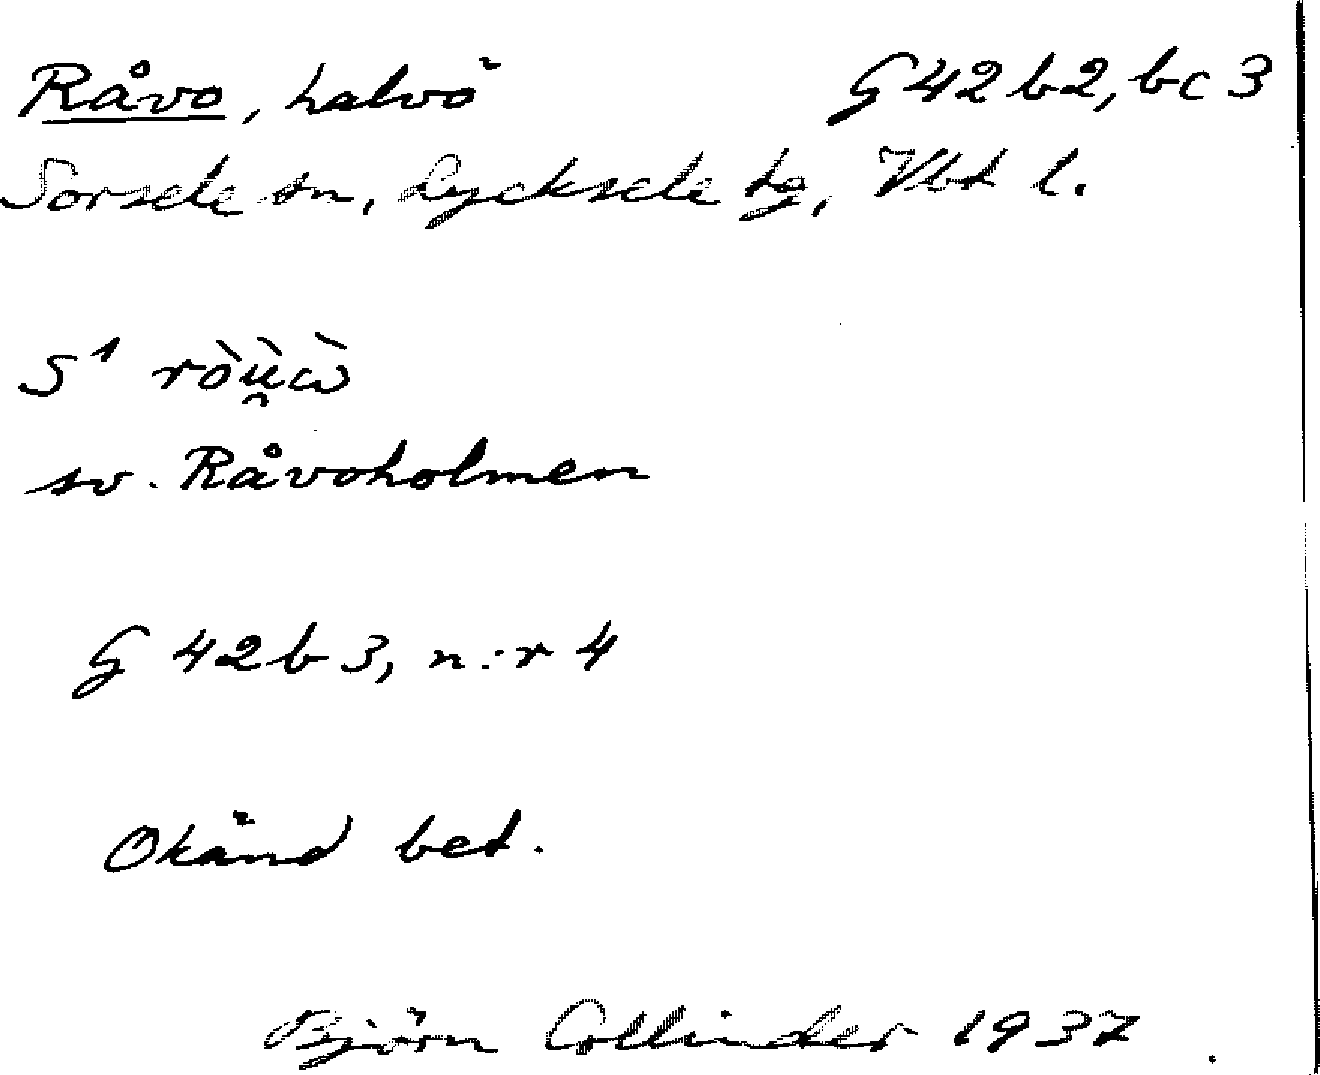 Råvo, halvö G 42 b 2, bc 3
Sorsele sn, Lycksele tg, Vbt l.
S¹ ròṷ̀ὼ
sv. Råvoholmen
G 42 b 3, n:r 4
Okänd bet.
Björn Collinder 1937